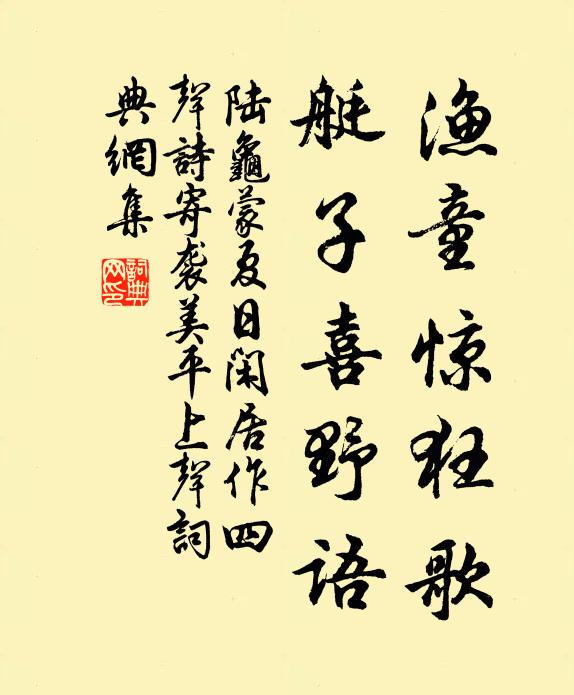 渔童惊狂歌
艇子喜野语
陆龜蒙夏日闲居作四
聲詩寄袭美平上聲詞
典網集
詞典网印